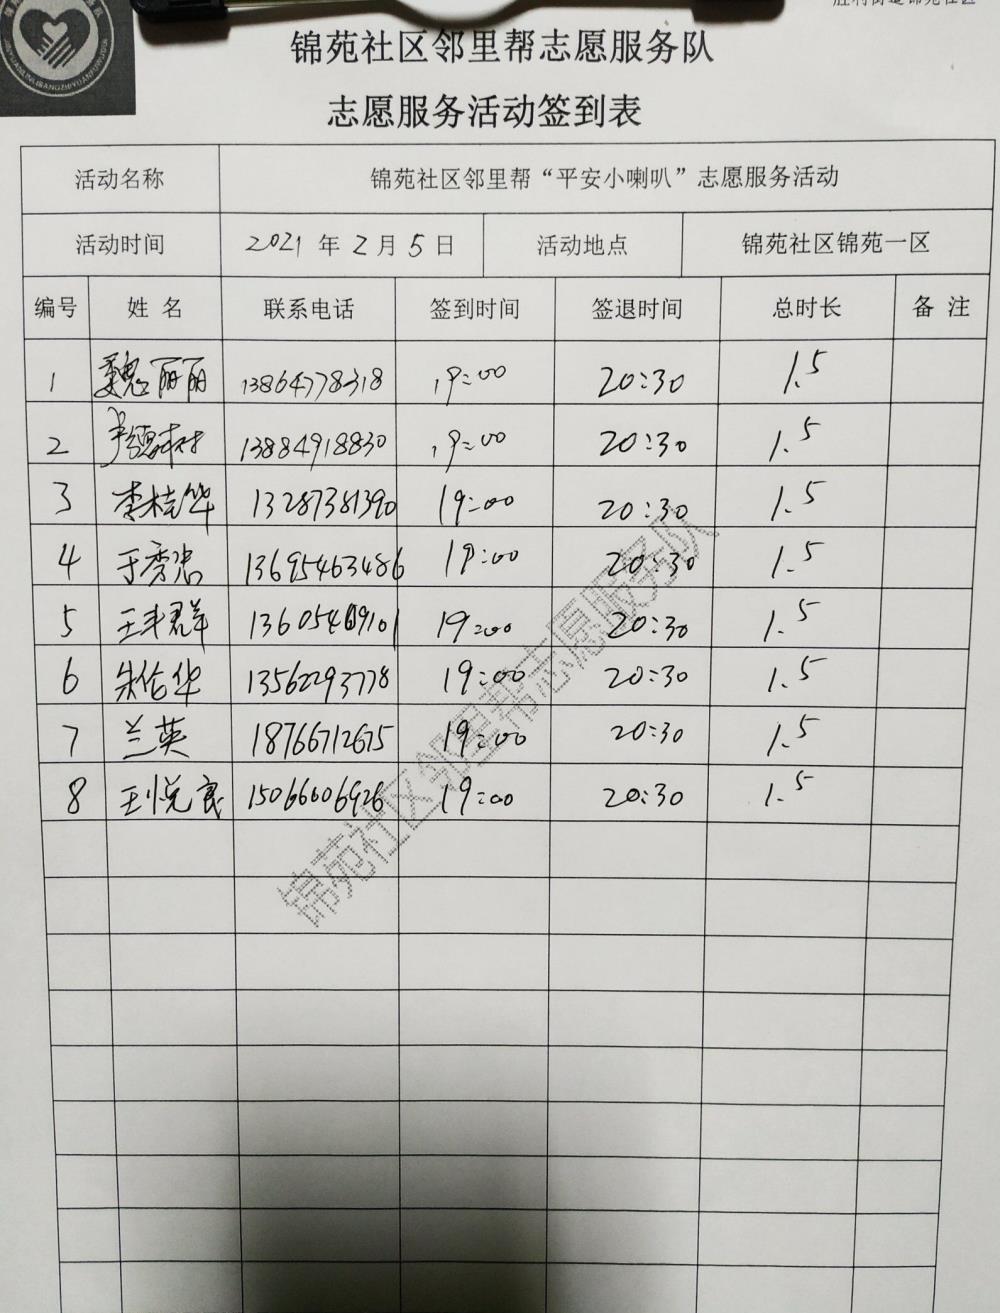 锦苑社区邻里帮志愿服务队
志愿服务活动签到表
活动名称 锦苑社区邻里帮“平安小喇叭”志愿服务活动
活动时间 2021 年 2 月 5 日 活动地点 锦苑社区锦苑一区
编号 姓 名 联系电话 签到时间 签退时间 总时长 备 注
1 魏丽丽 13864778318 19:00 20:30 1.5
2 13884918830 19:00 20:30 1.5
3 李桂华 13287381390 19:00 20:30 1.5
4 于秀忠 13695463486 19:00 20:30 1.5
5 王丰群 19:00 20:30 1.5
6 朱伦华 13562293778 19:00 20:30 1.5
7 兰英 18766712675 19:00 20:30 1.5
8 王悦亮 15066606926 19:00 20:30 1.5
锦苑社区邻里帮志愿服务队